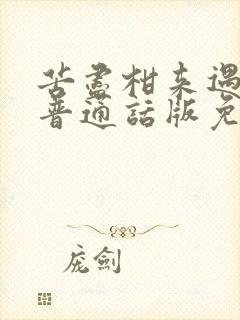 苦盡柑来遇
普通話版免
庞劍